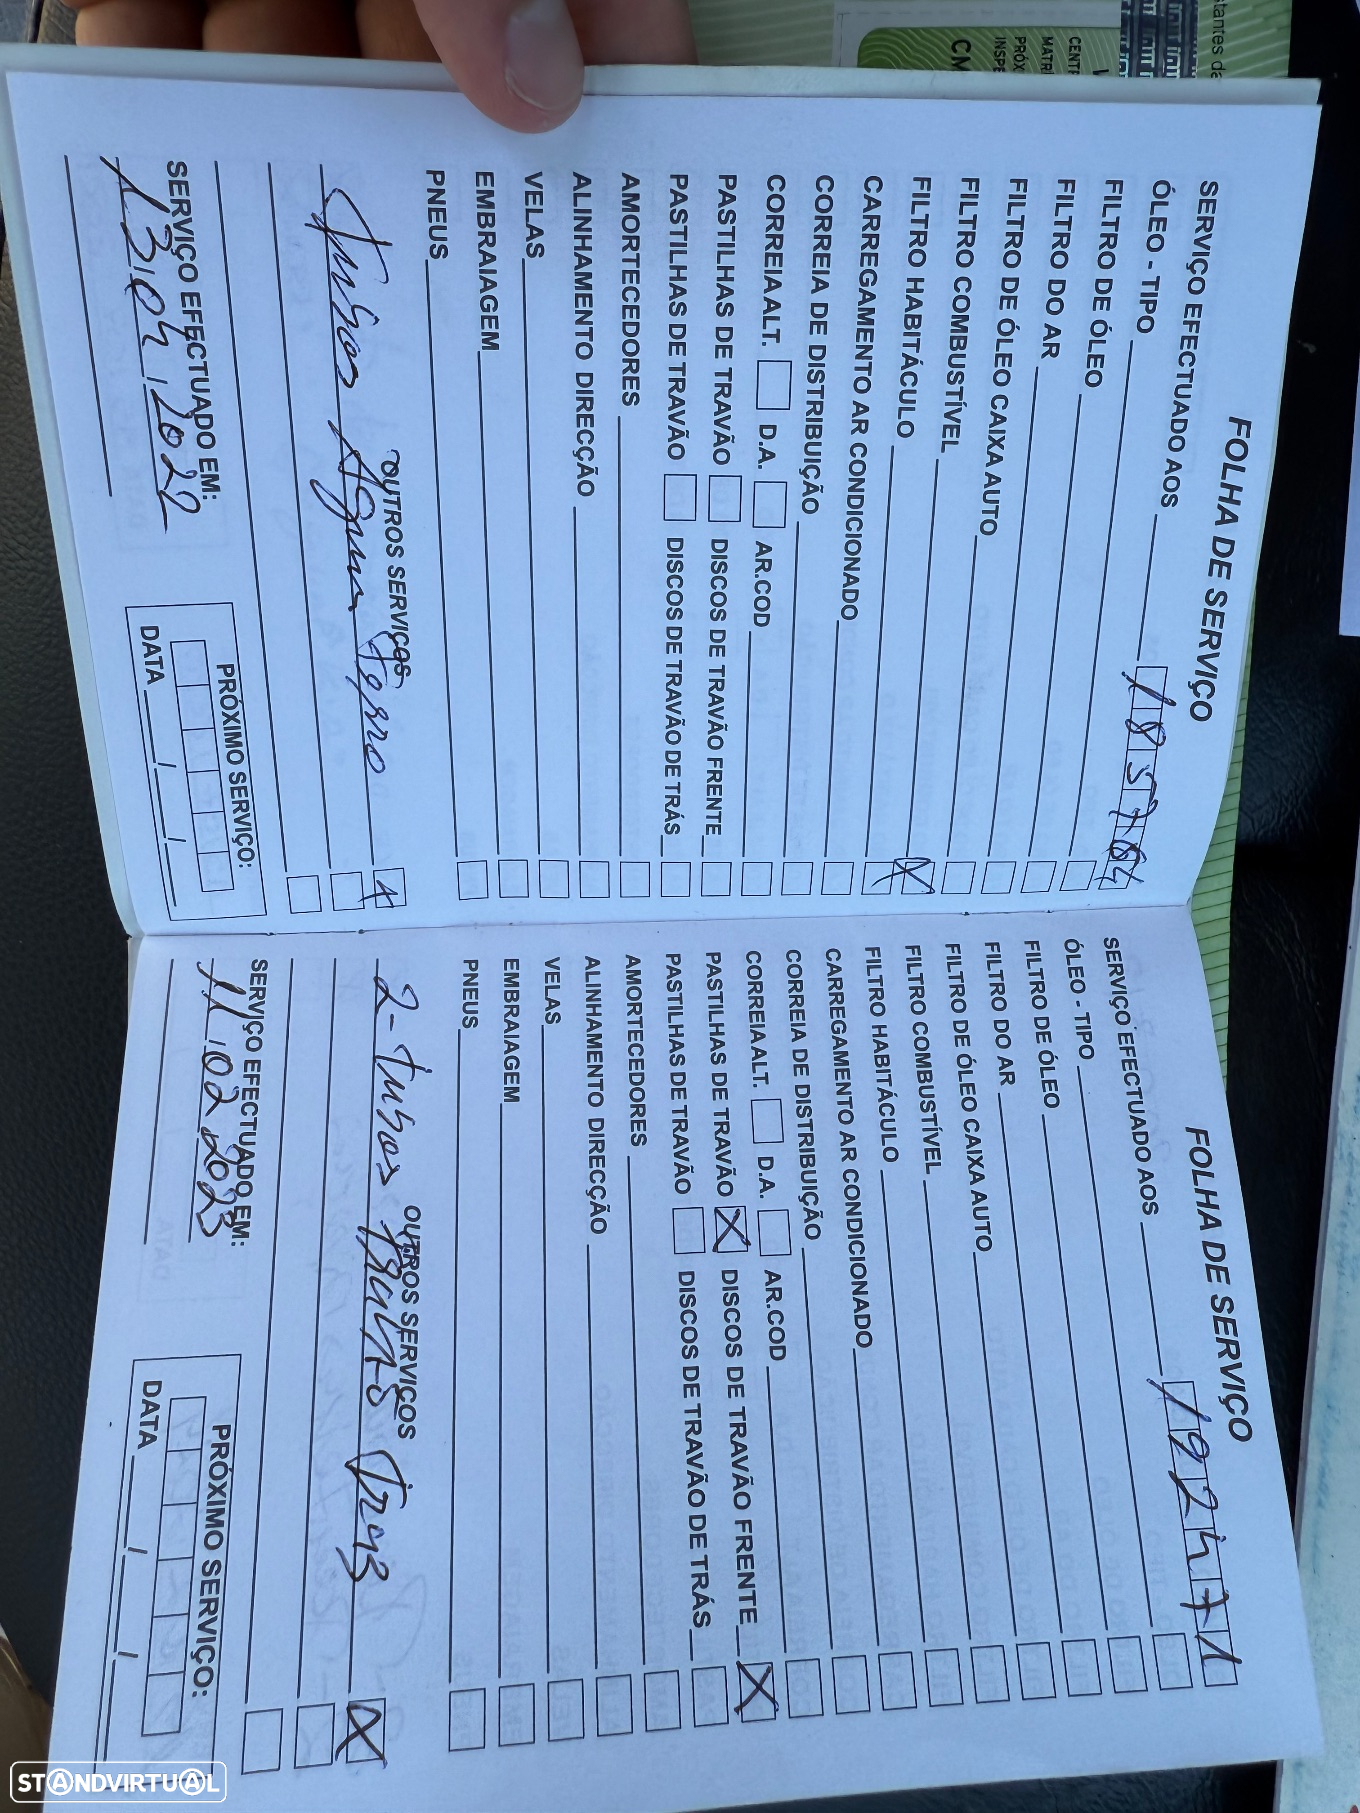 tantes da
CENT
MATR
PRÓX
INSPE
CM
FOLHA DE SERVIÇO
SERVIÇO EFECTUADO AOS 185764
ÓLEO - TIPO
FILTRO DE ÓLEO
FILTRO DO AR
FILTRO DE ÓLEO CAIXA AUTO
FILTRO COMBUSTÍVEL
FILTRO HABITÁCULO X
CARREGAMENTO AR CONDICIONADO
CORREIA DE DISTRIBUIÇÃO
CORREIA ALT. D.A. AR.COD
PASTILHAS DE TRAVÃO DISCOS DE TRAVÃO FRENTE
PASTILHAS DE TRAVÃO DISCOS DE TRAVÃO DE TRÁS
AMORTECEDORES
ALINHAMENTO DIRECÇÃO
VELAS
EMBRAIAGEM
PNEUS
OUTROS SERVIÇOS
Tubos Agua Ferro X
SERVIÇO EFECTUADO EM:
13/04/2022
PRÓXIMO SERVIÇO:
DATA / /
FOLHA DE SERVIÇO
SERVIÇO EFECTUADO AOS 192471
ÓLEO - TIPO
FILTRO DE ÓLEO
FILTRO DO AR
FILTRO DE ÓLEO CAIXA AUTO
FILTRO COMBUSTÍVEL
FILTRO HABITÁCULO
CARREGAMENTO AR CONDICIONADO
CORREIA DE DISTRIBUIÇÃO
CORREIA ALT. D.A. AR.COD
PASTILHAS DE TRAVÃO X DISCOS DE TRAVÃO FRENTE X
PASTILHAS DE TRAVÃO DISCOS DE TRAVÃO DE TRÁS
AMORTECEDORES
ALINHAMENTO DIRECÇÃO
VELAS
EMBRAIAGEM
PNEUS
OUTROS SERVIÇOS
2-Tubos Travão Tras X
SERVIÇO EFECTUADO EM:
11/02 2023
PRÓXIMO SERVIÇO:
DATA / /
STANDVIRTUAL